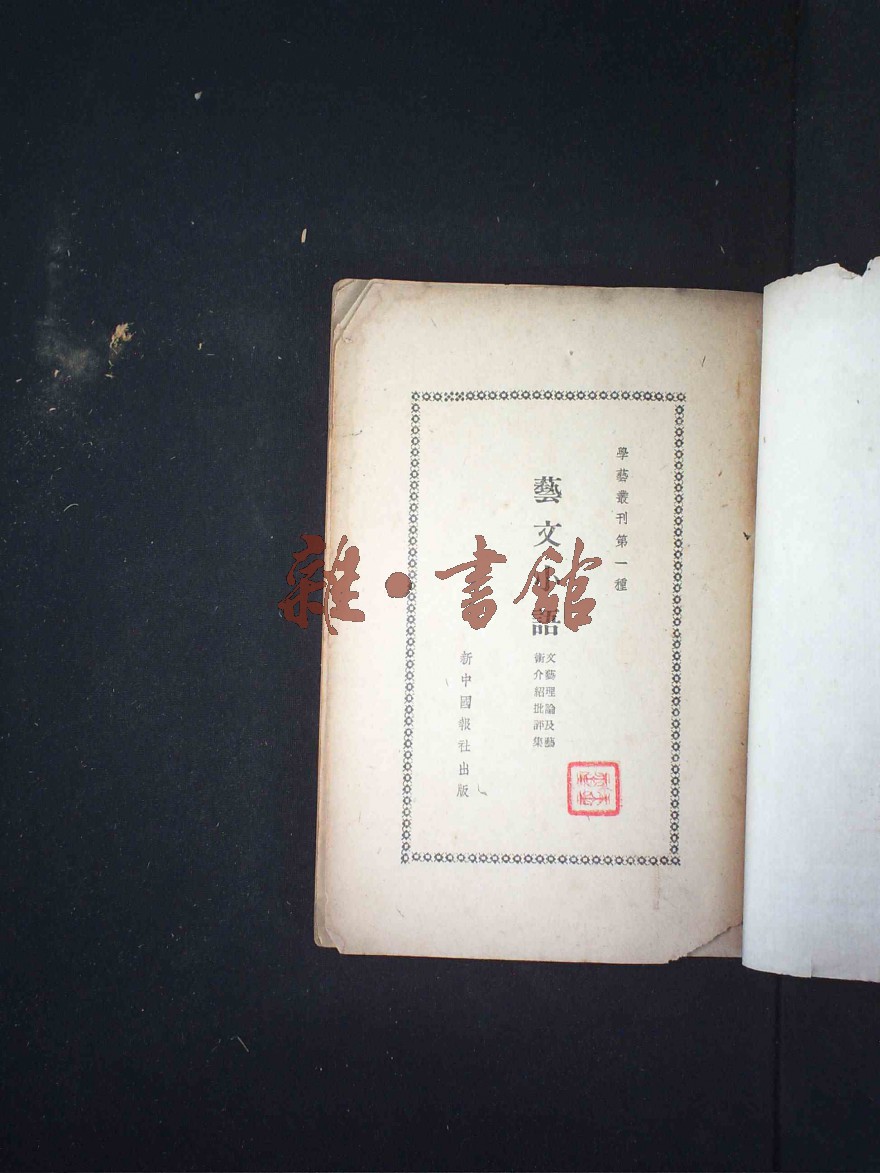 學藝叢刊第一種
藝文小語
文藝理論及藝
術介紹批評集
新中國報社出版
雜·書館